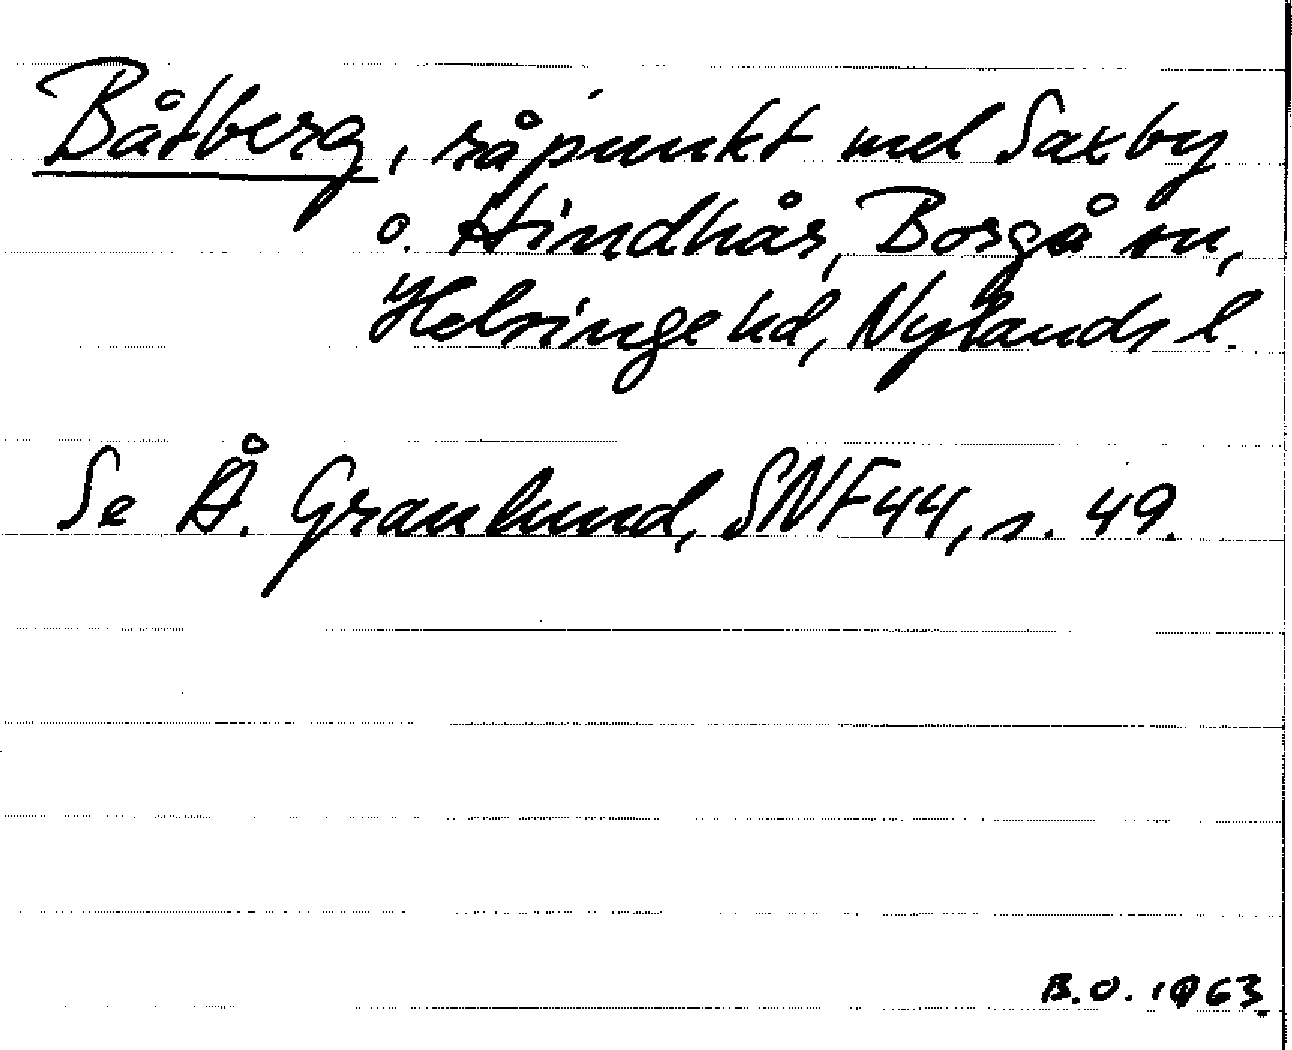 Båtberg, råpunkt mel Saxby
o. Hindhår, Borgå sn,
Helsinge hd, Nylands l.
Se Å. Granlund, SNF 44, s. 49.
B.O. 1963.